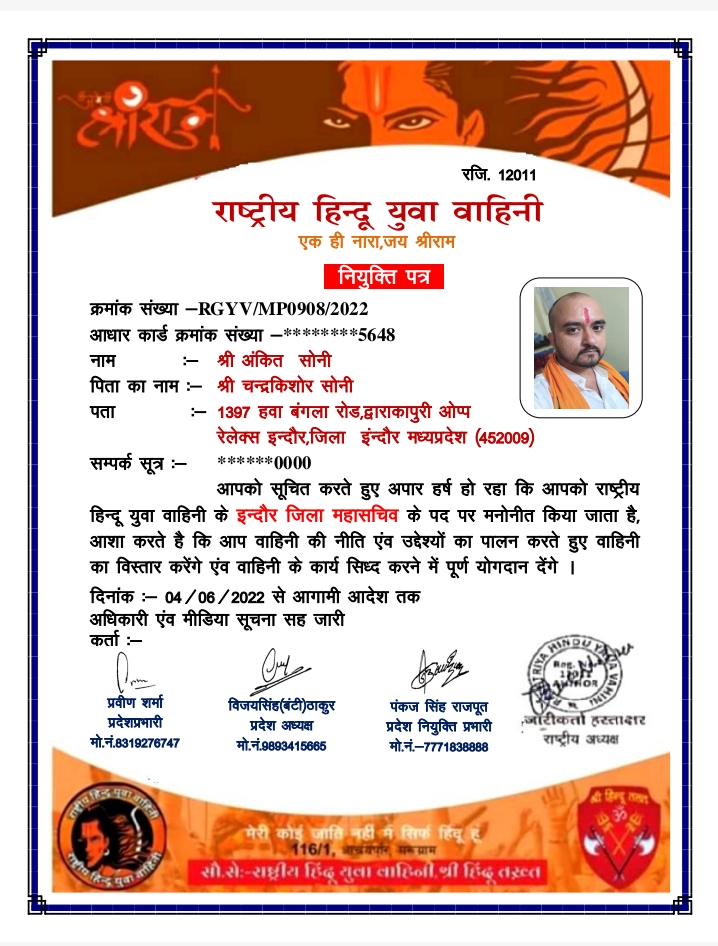 श्रीराम
रजि. 12011
राष्ट्रीय हिन्दू युवा वाहिनी
एक ही नारा,जय श्रीराम
नियुक्ति पत्र
क्रमांक संख्या –RGYV/MP0908/2022
आधार कार्ड क्रमांक संख्या –********5648
नाम :– श्री अंकित सोनी
पिता का नाम :– श्री चन्द्रकिशोर सोनी
पता :– 1397 हवा बंगला रोड,द्वाराकापुरी ओप्प
रेलेक्स इन्दौर,जिला इंन्दौर मध्यप्रदेश (452009)
सम्पर्क सूत्र :– ******0000
आपको सूचित करते हुए अपार हर्ष हो रहा कि आपको राष्ट्रीय
हिन्दू युवा वाहिनी के इन्दौर जिला महासचिव के पद पर मनोनीत किया जाता है,
आशा करते है कि आप वाहिनी की नीति एंव उद्देश्यों का पालन करते हुए वाहिनी
का विस्तार करेंगे एंव वाहिनी के कार्य सिध्द करने में पूर्ण योगदान देंगे ।
दिनांक :– 04/06/2022 से आगामी आदेश तक
अधिकारी एंव मीडिया सूचना सह जारी
कर्ता :–
प्रवीण शर्मा
प्रदेशप्रभारी
मो.नं.8319276747
विजयसिंह(बंटी)ठाकुर
प्रदेश अध्यक्ष
मो.नं.9893415665
पंकज सिंह राजपूत
प्रदेश नियुक्ति प्रभारी
मो.नं.–7771838888
RASHTRIYA HINDU YUVA VAHINI
Reg. No.
12011
AUTHOR
जारीकर्ता हस्ताक्षर
राष्ट्रीय अध्यक्ष
राष्ट्रीय हिन्दू युवा वाहिनी
राष्ट्रीय हिन्दू युवा वाहिनी
मेरी कोई जाति नहीं मै सिर्फ हिंदू हूं
116/1,
सौ.से:-राष्ट्रीय हिंदू युवा वाहिनी,श्री हिंदू तख़्त
श्री हिन्दू तख़्त
ॐ